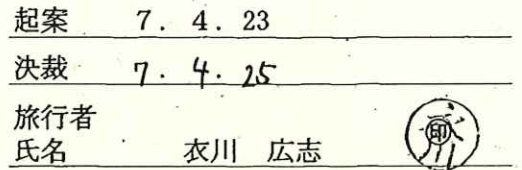 起案 7. 4. 23
決裁 7. 4. 25
旅行者
氏名 衣川 広志 印